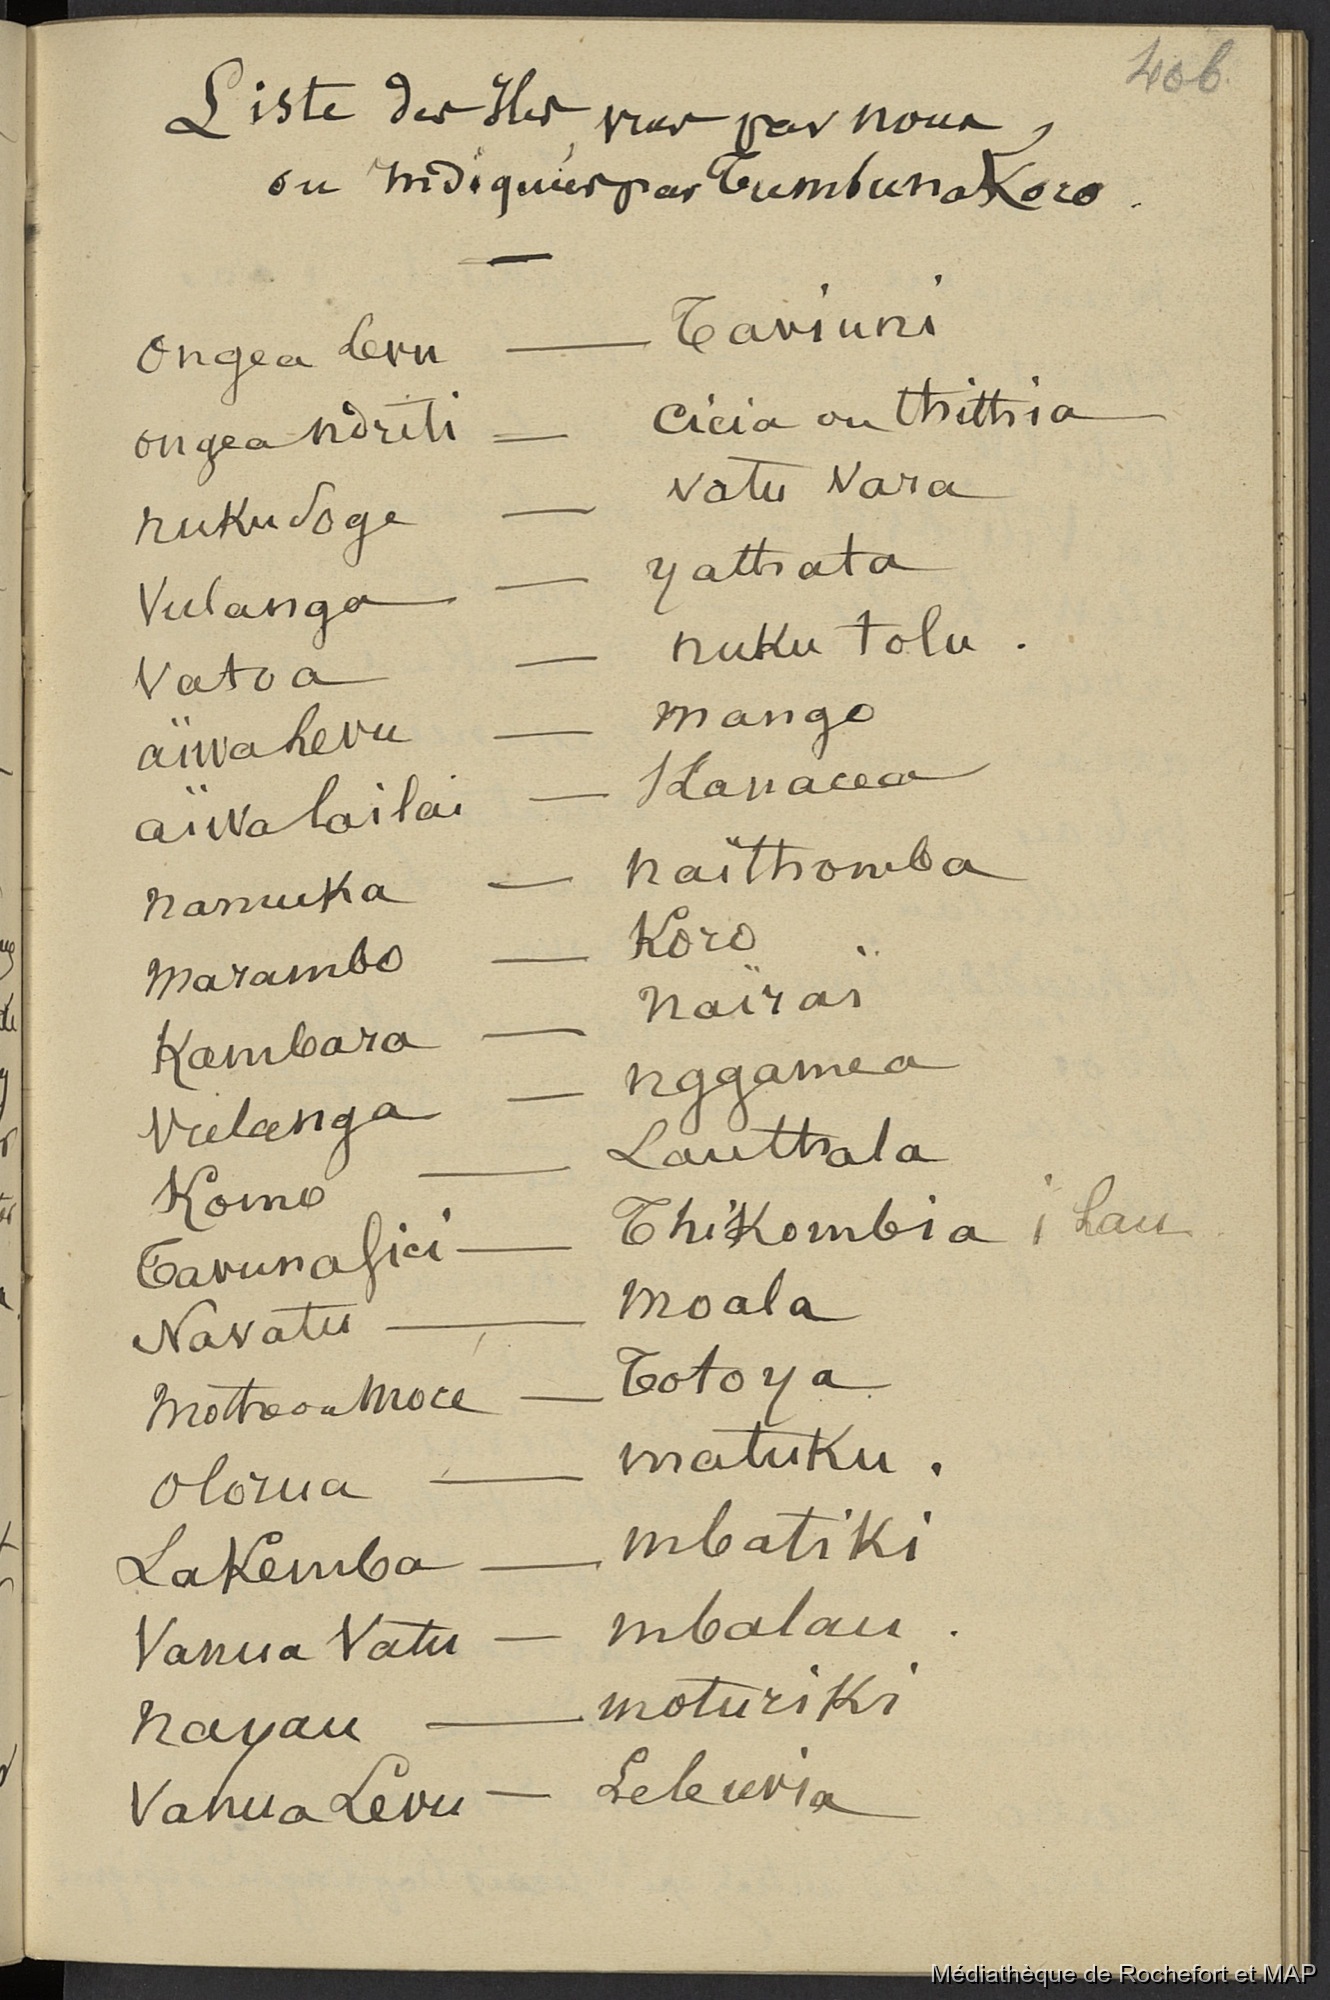 406.
Liste des Iles, vues par nous,
ou indiquées par Tumbuna Koro.
Ongea levu — Taviuni
ongea ndriti — cicia ou thithia
nukusoge — vatu vara
Vulanga — yathata
Vatoa — nuku tolu.
aïwa levu — mango
aïwa lailai — Kanacea
namuka — naïthomba
marambo — Koro
Kambara — naïraï
Vulanga — nggamea
Komo — Lauthala
Tavunasici — Thikombia i Lau
Navatu — moala
mothe ou moce — Totoya
olorua — matuku.
Lakemba — mbatiki
Vanua Vatu — mbalau.
nayau — moturiki
Vanua Levu — Leleuvia
Médiathèque de Rochefort et MAP